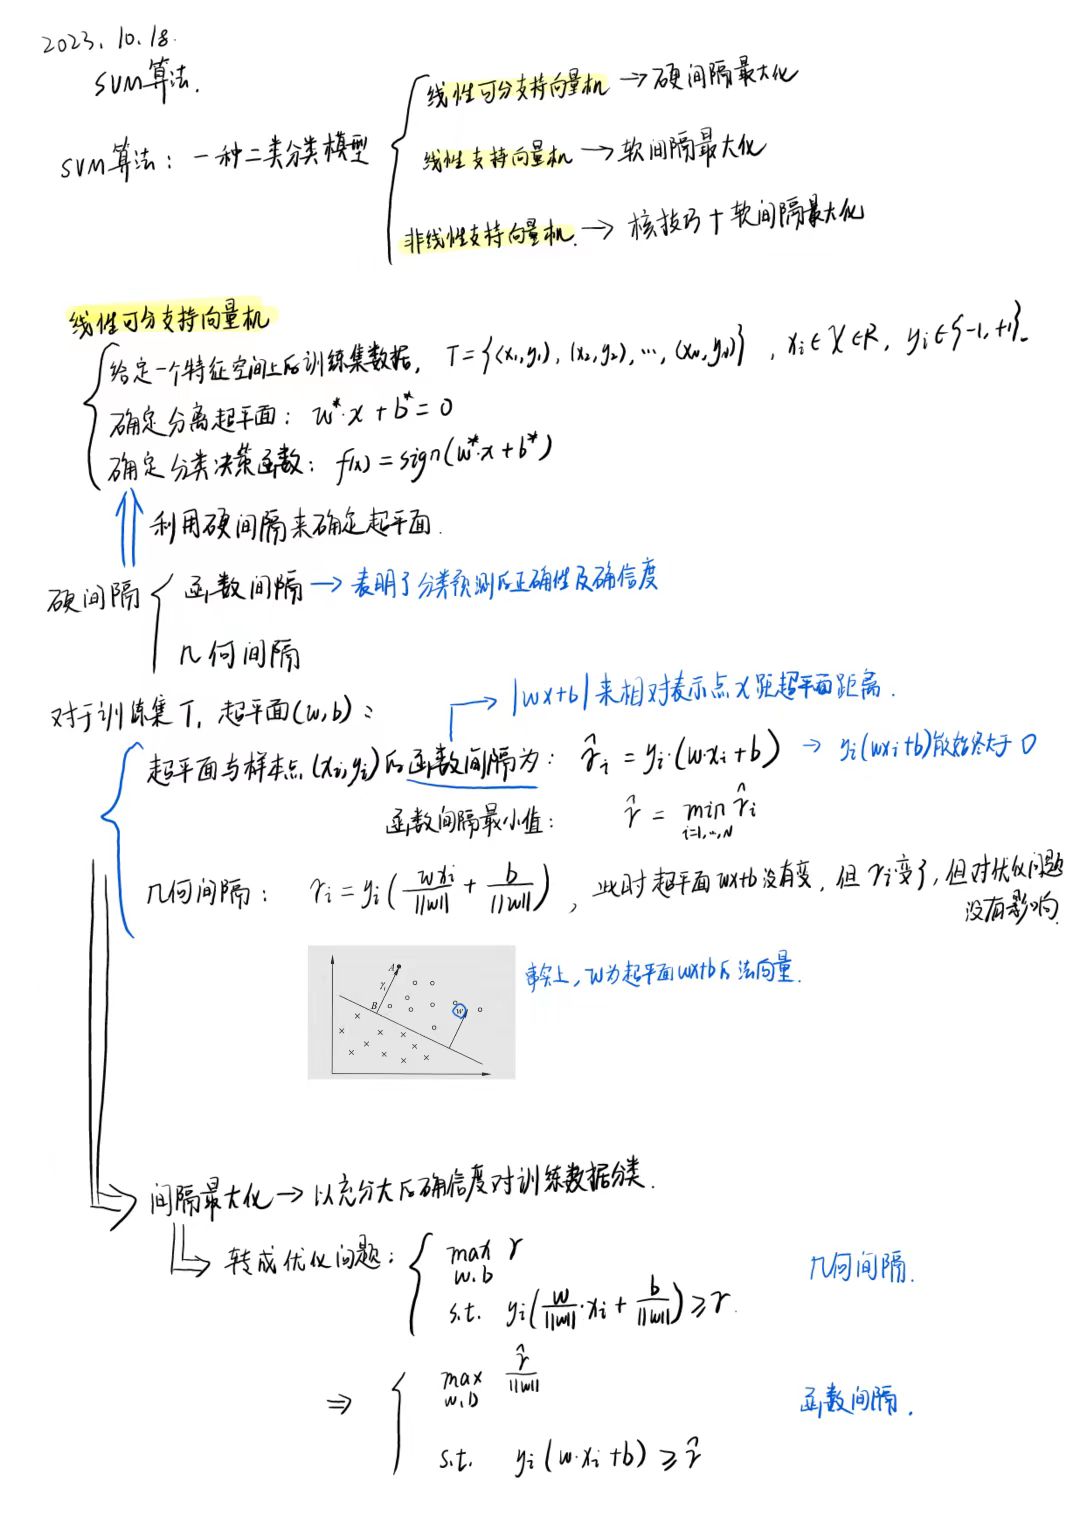 2023.10.18.
SVM算法.
SVM算法：一种二类分类模型
线性可分支持向量机 → 硬间隔最大化
线性支持向量机 → 软间隔最大化
非线性支持向量机. → 核技巧 + 软间隔最大化
线性可分支持向量机
给定一个特征空间上的训练集数据, T={(x₁,y₁), (x₂,y₂), ..., (x_N,y_N)}, xᵢ∈X∈R, yᵢ∈{-1,+1}.
确定分离超平面：w*·x+b*=0
确定分类决策函数：f(x)=sign(w*·x+b*)
利用硬间隔来确定超平面.
硬间隔
函数间隔 → 表明了分类预测的正确性及确信度
几何间隔
→ |wx+b|来相对表示点x距超平面距离.
对于训练集T, 超平面(w,b)：
超平面与样本点(xᵢ,yᵢ)的函数间隔为：γ̂ᵢ=yᵢ·(w·xᵢ+b) → yᵢ(wxᵢ+b)般始终大于0
函数间隔最小值：γ̂ = min γ̂ᵢ
i=1,...,N
几何间隔：γᵢ=yᵢ(wxᵢ/||w|| + b/||w||), 此时超平面wx+b没有变, 但γᵢ变了, 但对优化问题
没有影响.
事实上, w为超平面wx+b的法向量.
A
γᵢ
B
w
间隔最大化 → 以充分大的确信度对训练数据分类.
转成优化问题：
max γ
w.b
几何间隔.
s.t. yᵢ(w/||w||·xᵢ + b/||w||)≥γ.
⇒ max γ̂/||w||
w,b
函数间隔.
s.t. yᵢ(w·xᵢ+b)≥γ̂